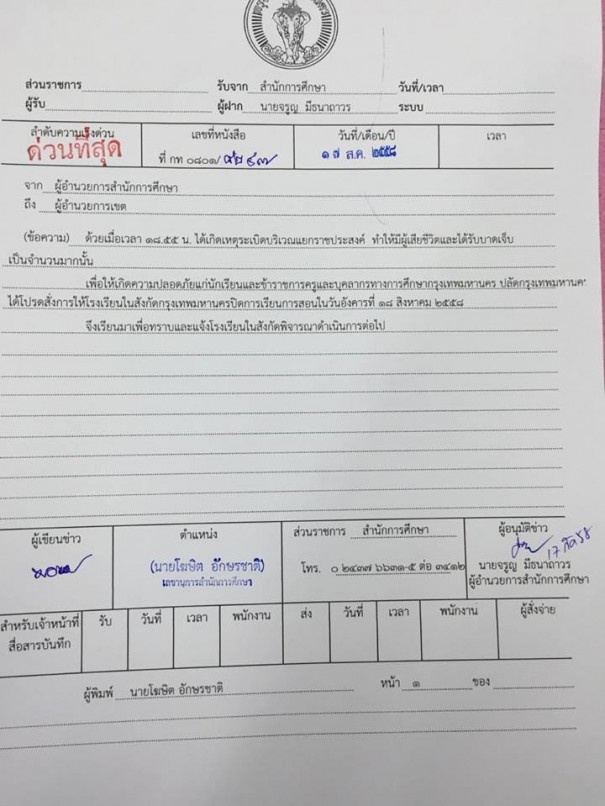 ส่วนราชการ รับจาก สำนักการศึกษา วันที่/เวลา
ผู้รับ ผู้ฝาก นายจรูญ มีธนาถาวร ระบบ
ลำดับความเร่งด่วน เลขที่หนังสือ วันที่/เดือน/ปี เวลา
ด่วนที่สุด ที่ กท ๐๘๐๑/ ๑๗ ส.ค. ๒๕๕๘
จาก ผู้อำนวยการสำนักการศึกษา
ถึง ผู้อำนวยการเขต
(ข้อความ) ด้วยเมื่อเวลา ๑๘.๕๕ น. ได้เกิดเหตุระเบิดบริเวณแยกราชประสงค์ ทำให้มีผู้เสียชีวิตและได้รับบาดเจ็บ
เป็นจำนวนมากนั้น
เพื่อให้เกิดความปลอดภัยแก่นักเรียนและข้าราชการครูและบุคลากรทางการศึกษากรุงเทพมหานคร ปลัดกรุงเทพมหานคร
ได้โปรดสั่งการให้โรงเรียนในสังกัดกรุงเทพมหานครปิดการเรียนการสอนในวันอังคารที่ ๑๘ สิงหาคม ๒๕๕๘
จึงเรียนมาเพื่อทราบและแจ้งโรงเรียนในสังกัดพิจารณาดำเนินการต่อไป
ผู้เขียนข่าว ตำแหน่ง ส่วนราชการ สำนักการศึกษา ผู้อนุมัติข่าว
(นายโฆษิต อักษรชาติ) โทร. ๐ ๒๔๓๗ ๖๖๓๑-๕ ต่อ ๓๔๑๒ นายจรูญ มีธนาถาวร
เลขานุการสำนักการศึกษา ผู้อำนวยการสำนักการศึกษา
สำหรับเจ้าหน้าที่ รับ วันที่ เวลา พนักงาน ส่ง วันที่ เวลา พนักงาน ผู้สั่งจ่าย
สื่อสารบันทึก
ผู้พิมพ์ นายโฆษิต อักษรชาติ หน้า ๑ ของ